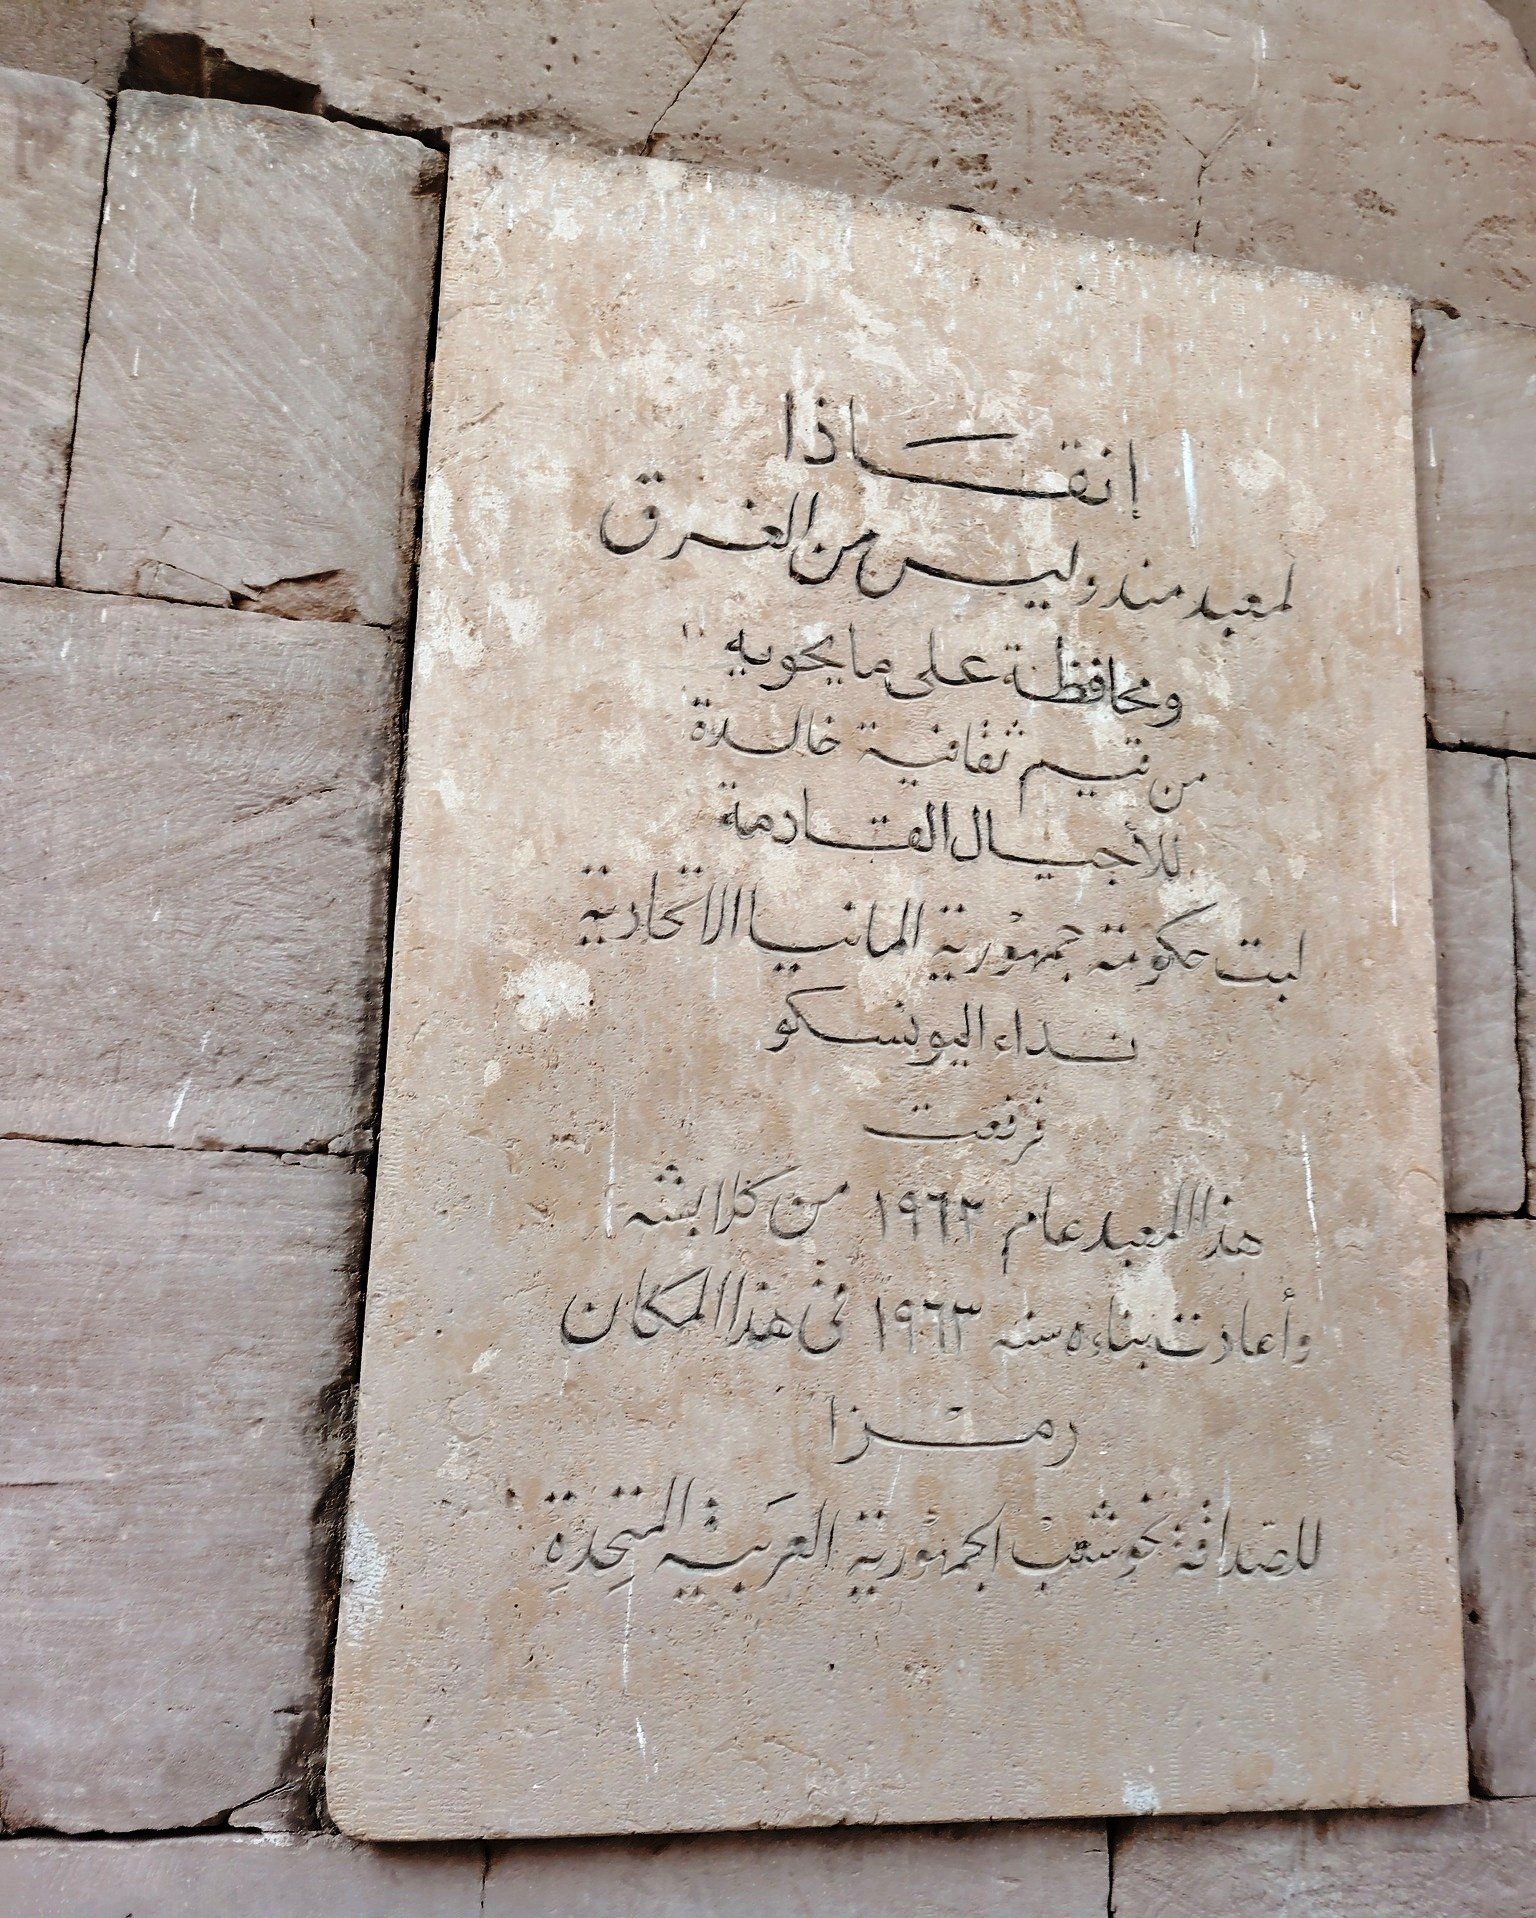 إنقــاذا
لمعبد مندوليس من الغرق
ومحافظة على ما يحويه
من قيم ثقافية خالدة
للأجيال القادمة
لبت حكومة جمهورية المانيا الاتحادية
نداء اليونسكو
فرفعت
هذا المعبد عام ١٩٦٢ من كلابشه
وأعادت بناءه سنه ١٩٦٣ فى هذا المكان
رمزا
للصداقة نحو شعب الجمهورية العربية المتحدة